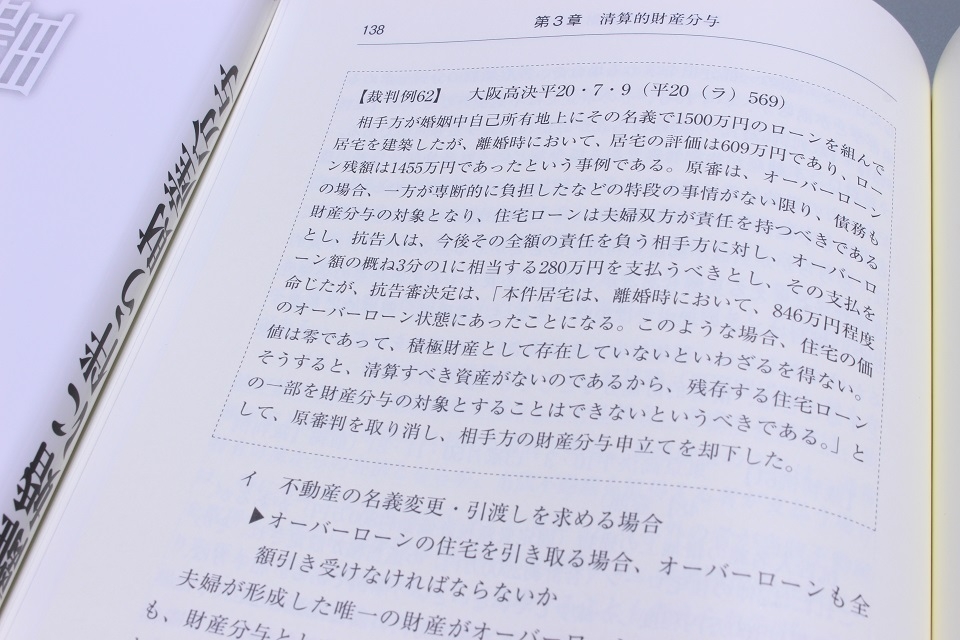 138
第3章　清算的財産分与
【裁判例62】　大阪高決平20・7・9（平20（ラ）569）
相手方が婚姻中自己所有地上にその名義で1500万円のローンを組んで
居宅を建築したが、離婚時において、居宅の評価は609万円であり、ロー
ン残額は1455万円であったという事例である。原審は、オーバーローン
の場合、一方が専断的に負担したなどの特段の事情がない限り、債務も
財産分与の対象となり、住宅ローンは夫婦双方が責任を持つべきである
とし、抗告人は、今後その全額の責任を負う相手方に対し、オーバーロ
ーン額の概ね3分の1に相当する280万円を支払うべきとし、その支払を
命じたが、抗告審決定は、「本件居宅は、離婚時において、846万円程度
のオーバーローン状態にあったことになる。このような場合、住宅の価
値は零であって、積極財産として存在していないといわざるを得ない。
そうすると、清算すべき資産がないのであるから、残存する住宅ローン
の一部を財産分与の対象とすることはできないというべきである。」と
して、原審判を取り消し、相手方の財産分与申立てを却下した。
イ　不動産の名義変更・引渡しを求める場合
▶オーバーローンの住宅を引き取る場合、オーバーローンも全
額引き受けなければならないか
夫婦が形成した唯一の財産がオーバーロ
も、財産分与と